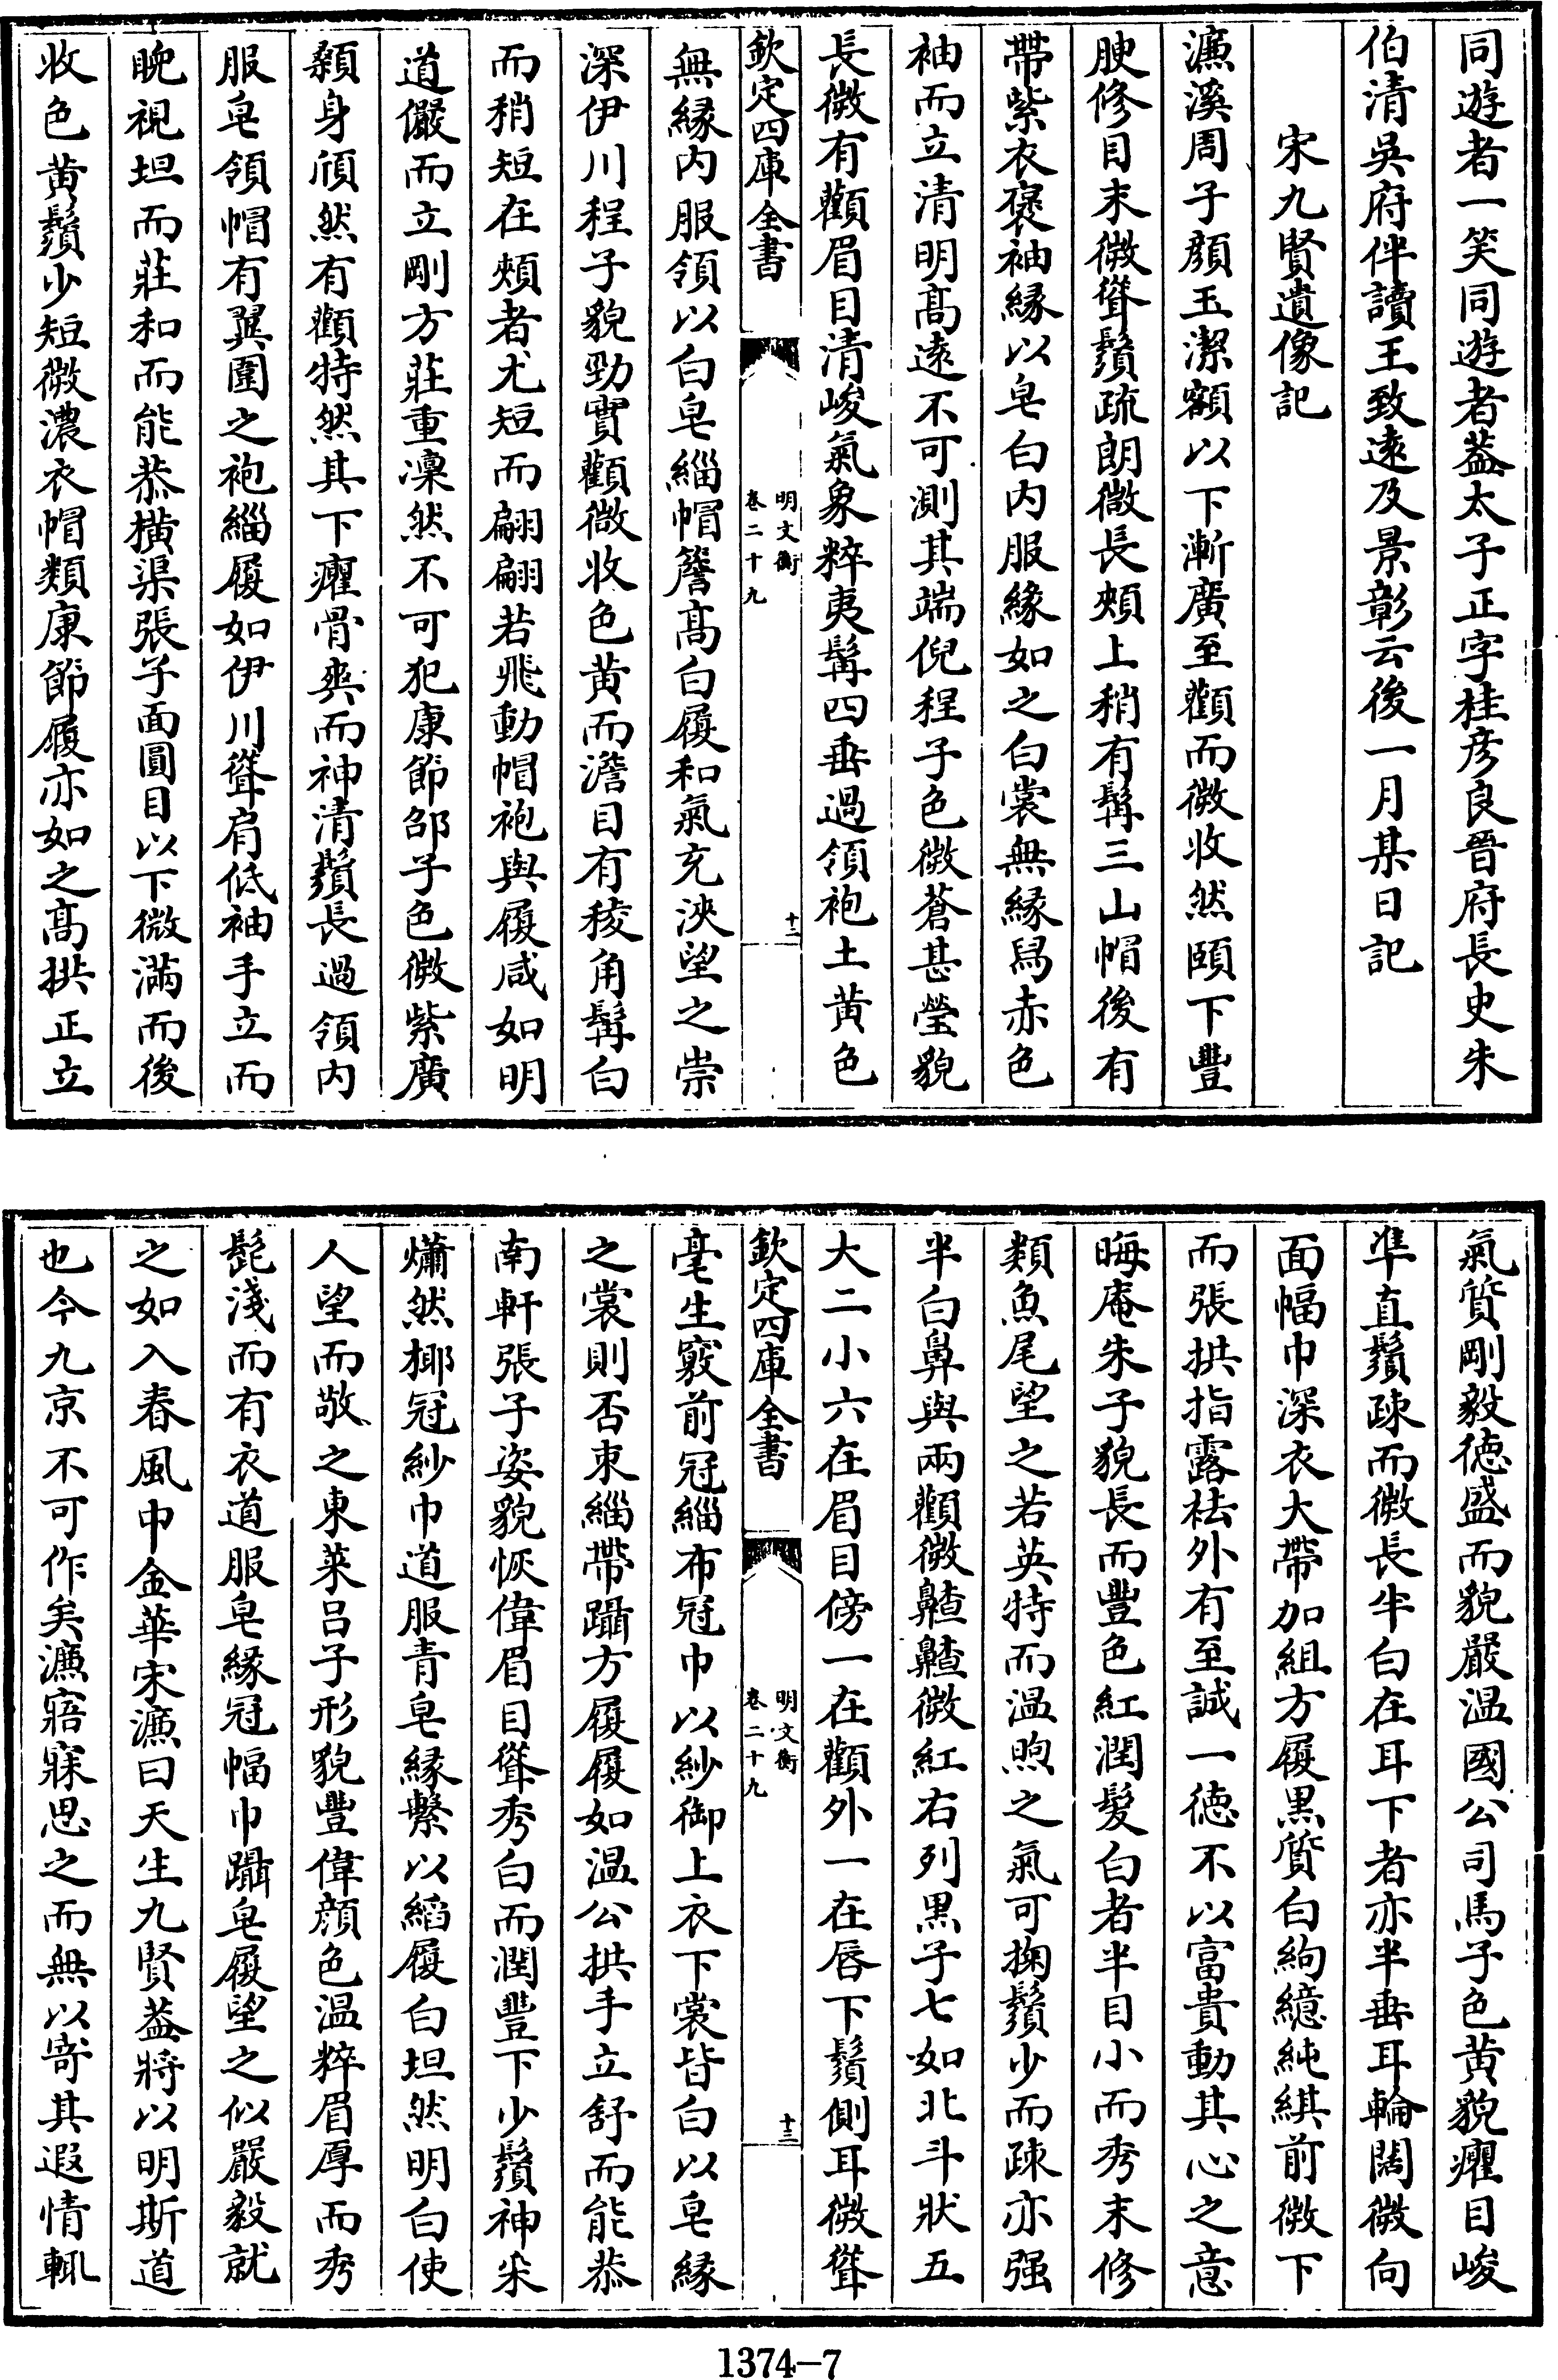 同遊者一笑同遊者葢太子正字桂彦良晉府長史朱
伯清吳府伴讀王致遠及景彰云後一月某日記
宋九賢遺像記
濂溪周子顔玉潔額以下漸廣至顴而微收然頤下豐
腴修目末微聳鬚疏朗微長頰上稍有髯三山帽後有
帶紫衣褒袖縁以皂白内服縁如之白裳無縁舄赤色
袖而立清明髙逺不可測其端倪程子色微蒼甚瑩貌
長微有顴眉目清峻氣象粹夷髯四垂過領袍土黄色
欽定四庫全書
明文衡
卷二十九
十二
無縁内服領以白皂緇帽簷髙白履和氣充浹望之崇
深伊川程子貌勁實顴微收色黄而澹目有稜角髯白
而稍短在頰者尤短而翩翩若飛動帽袍與履咸如明
道儼而立剛方莊重凛然不可犯康節邵子色微紫廣
顙身頎然有顴特然其下癯骨爽而神清鬚長過領内
服皂領帽有翼圍之袍緇履如伊川聳肩低袖手立而
睨視坦而莊和而能恭横渠張子面圓目以下微滿而後
收色黄鬚少短微濃衣帽類康節履亦如之髙拱正立
氣質剛毅徳盛而貌嚴温國公司馬子色黄貌癯目峻
凖直鬚疎而微長半白在耳下者亦半垂耳輪闊微向
面幅巾深衣大帶加組方履黒質白絇繶純綦前微下
而張拱指露袪外有至誠一徳不以富貴動其心之意
晦庵朱子貌長而豐色紅潤髮白者半目小而秀末修
類魚尾望之若英特而温煦之氣可掬鬚少而疎亦强
半白鼻與兩顴微齄齄微紅右列黒子七如北斗狀五
大二小六在眉目傍一在顴外一在唇下鬚側耳微聳
欽定四庫全書
明文衡
卷二十九
十三
毫生竅前冠緇布冠巾以紗御上衣下裳皆白以皂縁
之裳則否束緇帶躡方履履如温公拱手立舒而能恭
南軒張子姿貌恢偉眉目聳秀白而潤豐下少鬚神采
爥然椰冠紗巾道服青皂縁繫以縚履白坦然明白使
人望而敬之東萊吕子形貌豐偉顔色温粹眉厚而秀
髭淺而有衣道服皂縁冠幅巾躡皂履望之似嚴毅就
之如入春風中金華宋濂曰天生九賢葢將以明斯道
也今九京不可作矣濂寤寐思之而無以寄其遐情輒
1374-7